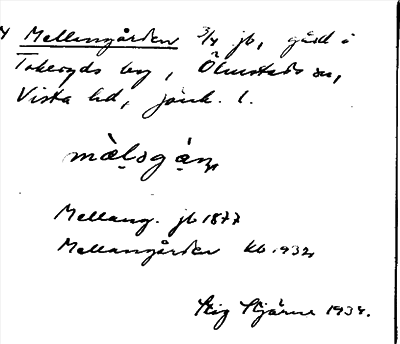 Mellengården 3/4 jb, gård i
Tokeryds by, Ölmstads sn,
Vista hd, jönk. l.
mȧl̥sgȧn
Mellang. jb 1877
Mellangården kb 1932
Stig Stjärne 1934.